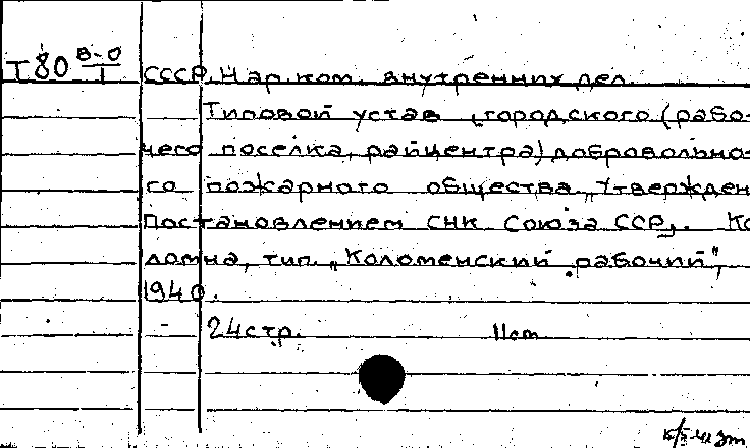 Т80 В-О/1 СССР. Нар. ком. внутренних дел.
Типовой устав городского (рабо-
чего поселка, райцентра) добровольно-
го пожарного общества. Утвержден
Постановлением СНК Союза ССР. Ко
ломна, тип. „Коломенский рабочий",
1940.
24 стр. 11 см